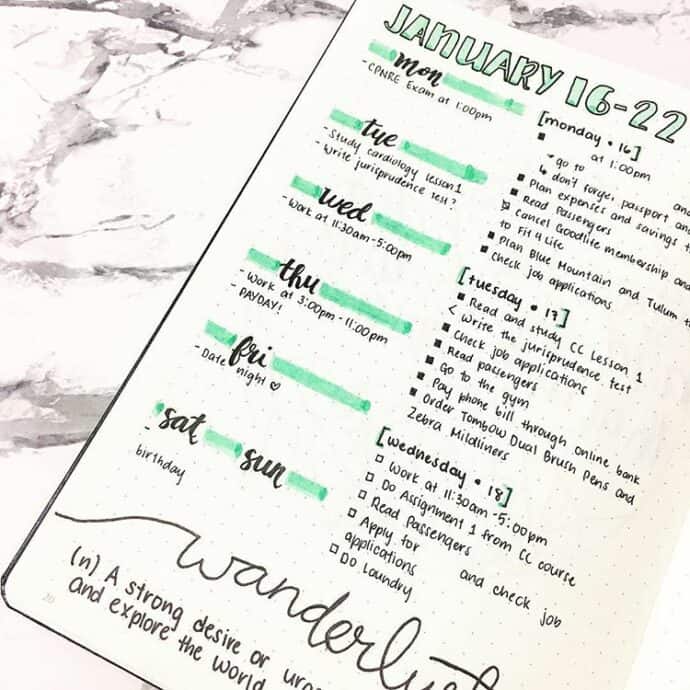 JANUARY 16-22
mon
- CPNRE Exam at 1:00pm
tue
- Study cardiology lesson 1
- Write jurisprudence test?
wed
- Work at 11:30am-5:00pm
thu
- Work at 3:00pm - 11:00pm
- PAYDAY!
fri
- Date night ♡
sat sun
-
birthday
[monday • 16]
at 1:00pm
→ go to
↳ don't forget passport and
■ Plan expenses and savings
■ Read Passengers
Cancel Goodlife membership and
to Fit 4 Life
■ Plan Blue Mountain and Tulum
■ Check job applications
[tuesday • 17]
■ Read and study CC Lesson 1
< Write the jurisprudence test
■ Check job applications
■ Read passengers
■ Go to the gym
■ Pay phone bill through online bank
■ Order Tombow Dual Brush Pens and
Zebra Mildliners
[wednesday • 18]
□ Work at 11:30am-5:00pm
□ Do Assignment 1 from CC course
□ Read Passengers
□ Apply for and check job
applications
□ Do Laundry
wanderlust
(n) A strong desire or
and explore the world
20